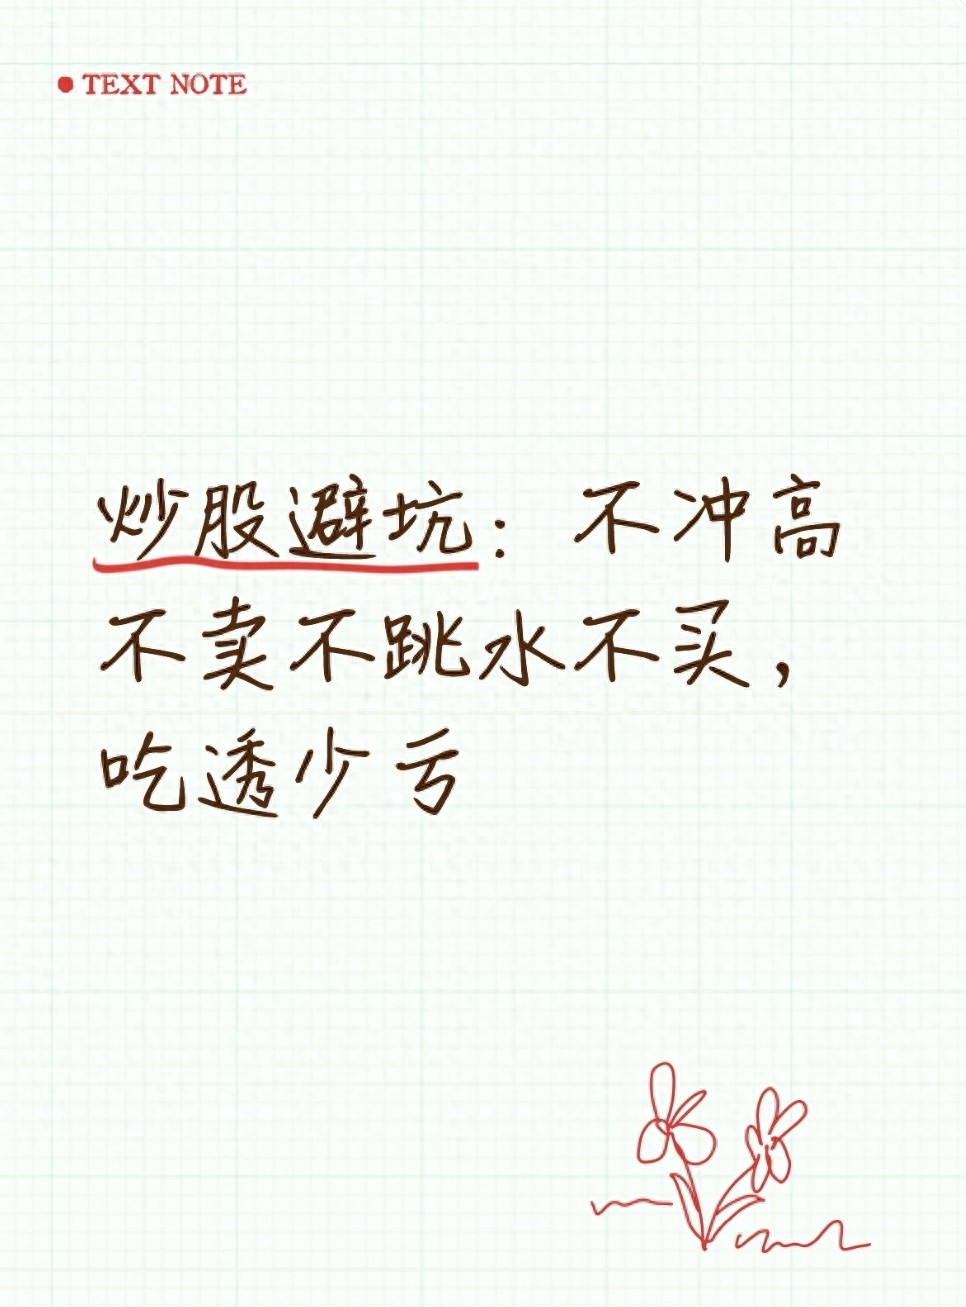 TEXT NOTE
炒股避坑：不冲高
不卖不跳水不买，
吃透少亏